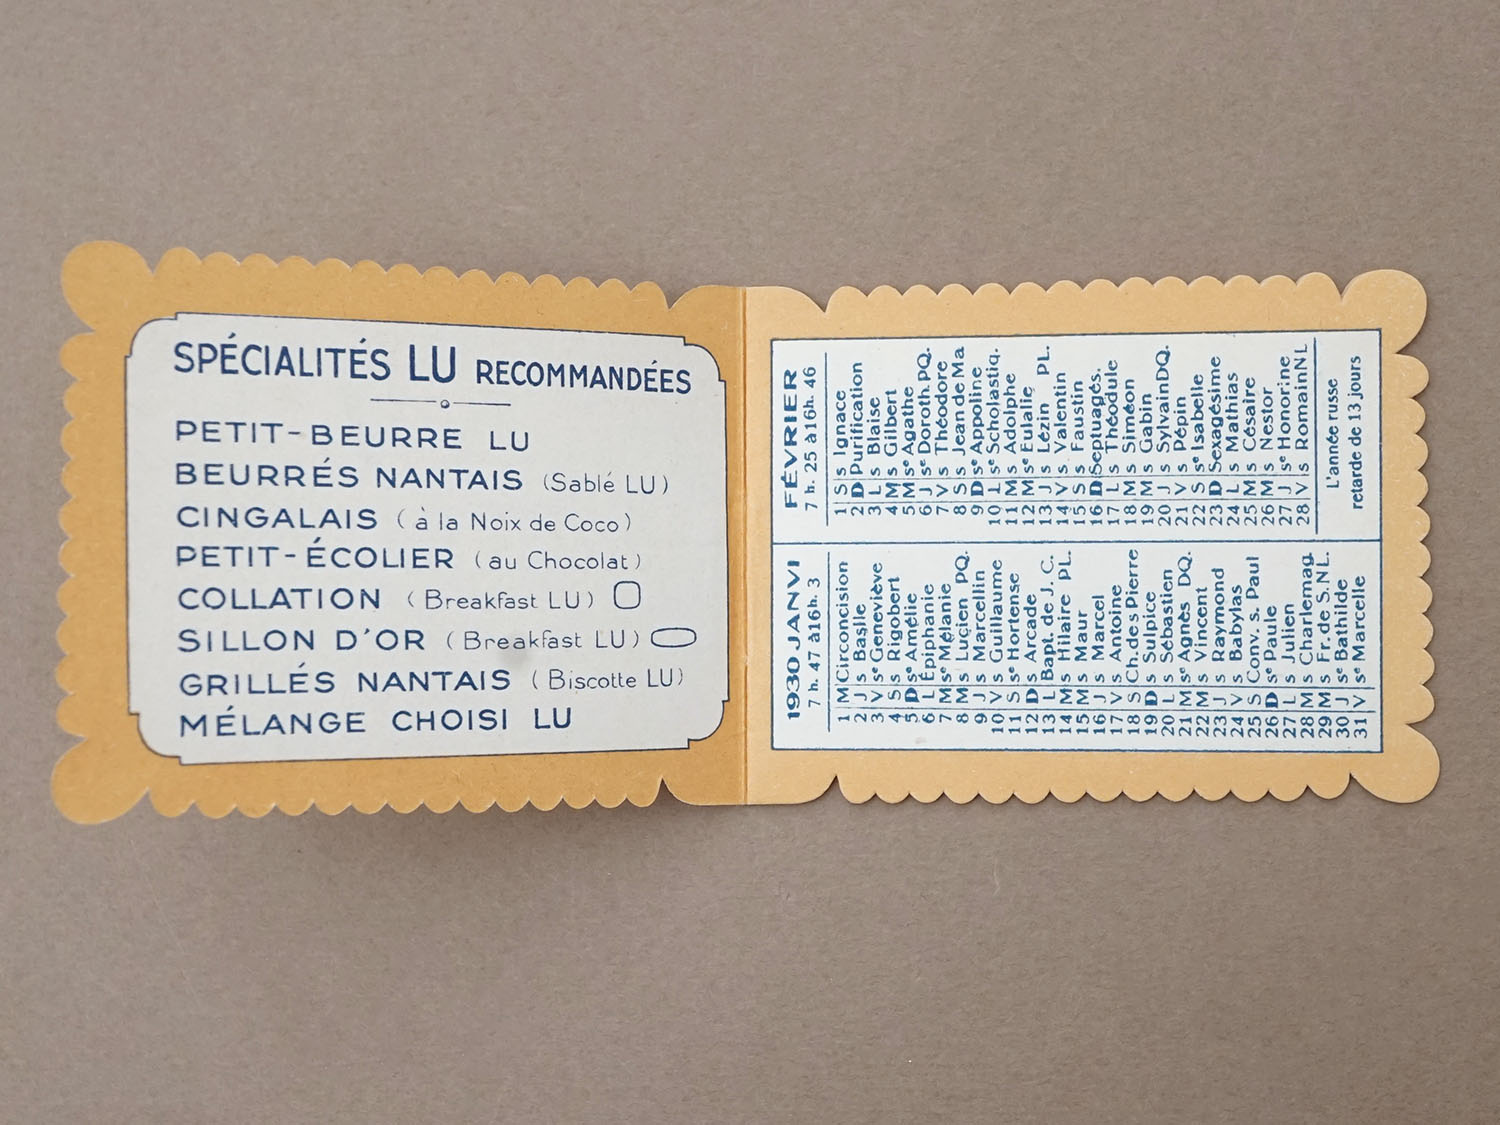 SPÉCIALITÉS LU RECOMMANDÉES
PETIT-BEURRE LU
BEURRÉS NANTAIS (Sablé LU)
CINGALAIS (à la Noix de Coco)
PETIT-ÉCOLIER (au Chocolat)
COLLATION (Breakfast LU)
SILLON D'OR (Breakfast LU)
GRILLÉS NANTAIS (Biscotte LU)
MÉLANGE CHOISI LU
1930 JANVI
7 h. 47 à 16h. 3
1 M Circoncision
2 J s Basile
3 V sᵉ Geneviève
4 S s Rigobert
5 D sᵉ Amélie
6 L Épiphanie
7 M sᵉ Mélanie
8 M s Lucien PQ.
9 J s Marcellin
10 V s Guillaume
11 S sᵉ Hortense
12 D s Arcade
13 L Bapt. de J. C.
14 M s Hilaire PL.
15 M s Maur
16 J s Marcel
17 V s Antoine
18 S Ch. des Pierre
19 D s Sulpice
20 L s Sébastien
21 M sᵉ Agnès DQ.
22 M s Vincent
23 J s Raymond
24 V s Babylas
25 S Conv. s. Paul
26 D sᵉ Paule
27 L s Julien
28 M s Charlemag.
29 M s Fr. de S. NL.
30 J sᵉ Bathilde
31 V sᵉ Marcelle
FÉVRIER
7 h. 25 à 16h. 46
1 S s Ignace
2 D Purification
3 L s Blaise
4 M s Gilbert
5 M sᵉ Agathe
6 J sᵉ Doroth. PQ.
7 V s Théodore
8 S s Jean de Ma
9 D sᵉ Appoline
10 L sᵉ Scholastiq.
11 M s Adolphe
12 M sᵉ Eulalie
13 J s Lézin PL.
14 V s Valentin
15 S s Faustin
16 D Septuagés.
17 L s Théodule
18 M s Siméon
19 M s Gabin
20 J s Sylvain DQ.
21 V s Pépin
22 S sᵉ Isabelle
23 D Sexagésime
24 L s Mathias
25 M s Césaire
26 M s Nestor
27 J sᵉ Honorine
28 V s Romain NL
L'année russe
retarde de 13 jours